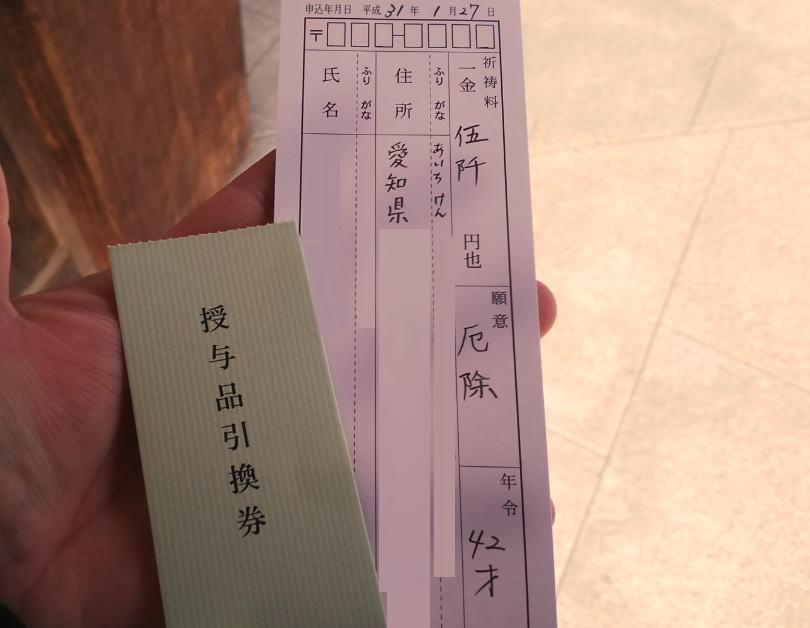 申込年月日 平成31年1月27日
〒
祈祷料
一金 伍阡 円也
願意
厄除
年令
42才
ふりがな あいちけん
住所 愛知県
ふりがな
氏名
授与品引換券